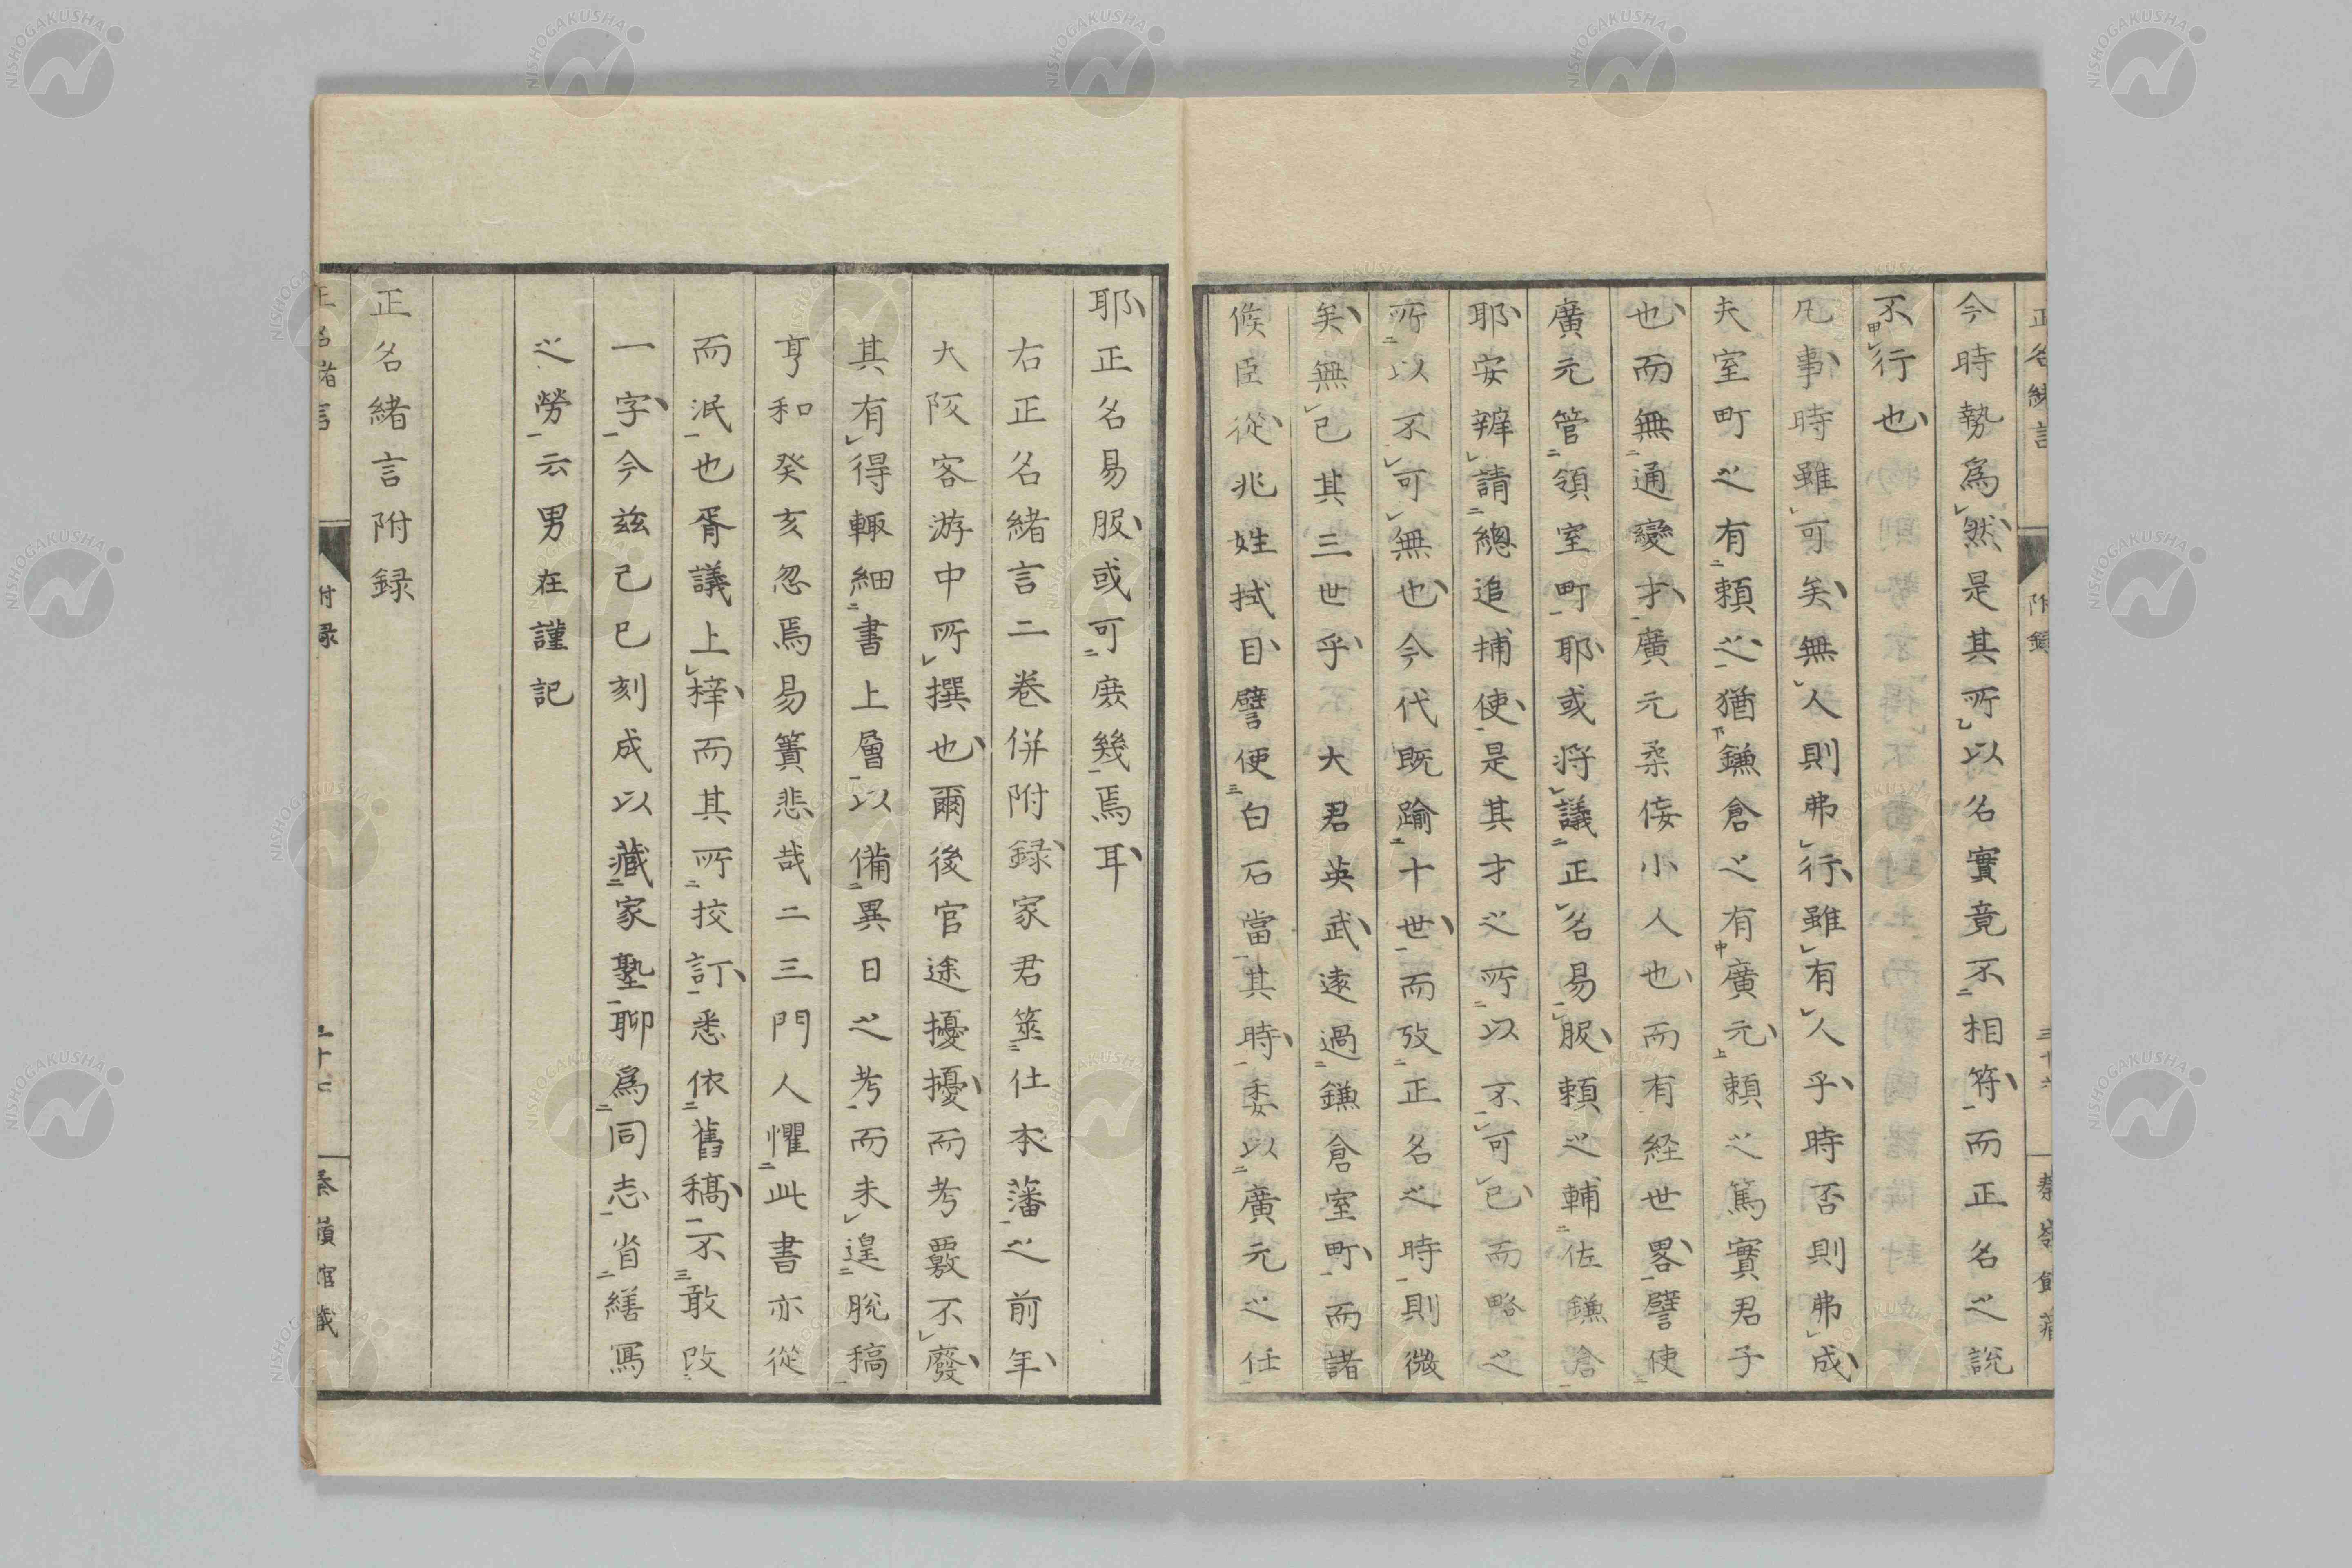 今時勢爲然是其所以名實竟不相符而正名之說
不行也
凡事時雖可矣無人則弗行雖有人乎時否則弗成
夫室町之有頼之猶鎌倉之有廣元頼之篤實君子
也而無通變才廣元柔侫小人也而有経世畧譬使
廣元管領室町耶或將議正名易服頼之輔佐鎌倉
耶安辨請總追捕使是其才之所以不可已而略之
所以不可無也今代既踰十世而攷正名之時則微
矣無已其三世乎大君英武遠過鎌倉室町而諸
候臣從兆姓拭目譬使白石當其時委以廣元之任
耶正名易服或可庻幾焉耳
右正名緒言二巻併附録家君筮仕本藩之前年
大阪客游中所撰也爾後官途擾擾而考覈不廢
其有得輙細書上層以備異日之考而未遑脱稿
享和癸亥忽焉易簀悲哉二三門人懼此書亦從
而泯也胥議上梓而其所挍訂悉依舊稿不敢改
一字今茲己巳刻成以藏家塾聊爲同志省繕寫
之勞云男在謹記
正名緒言附録
正名緒言
附録
NISHOGAKUSHA